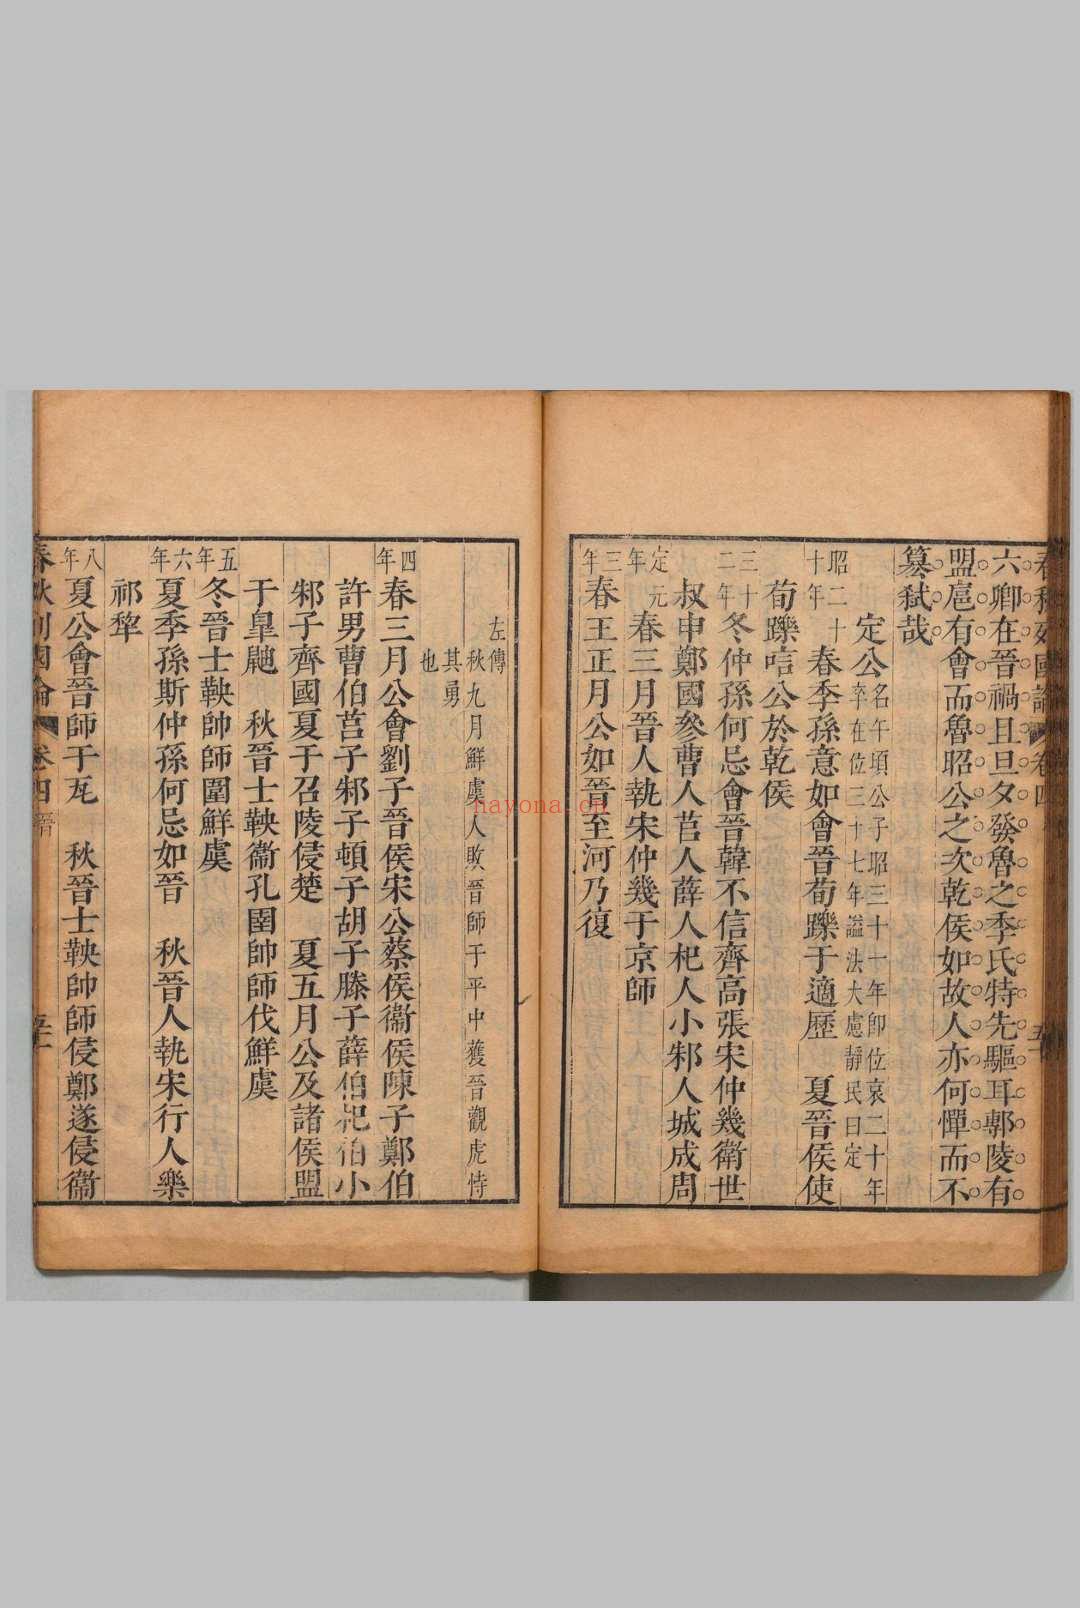 春秋列國論 卷四 晉
六卿在晉禍且旦夕發魯之季氏特先驅耳鄟陵有
盟扈有會而魯昭公之次乾侯如故人亦何憚而不
篡弑哉
定公名午項公子昭三十一年即位哀二十年
卒在位三十七年謚法大慮靜民曰定
昭二十
十年
春季孫意如會晉荀躒于適歷 夏晉侯使
荀躒唁公於乾侯
三十
二年
冬仲孫何忌會晉韓不信齊高張宋仲幾衛世
叔申鄭國參曹人莒人薛人杞人小邾人城成周
定元
年
春三月晉人執宋仲幾于京師
三
年
春王正月公如晉至河乃復
左傳
秋九月鮮虞人敗晉師于平中獲晉觀虎恃
其勇
也
四
年
春三月公會劉子晉侯宋公蔡侯衞侯陳子鄭伯
許男曹伯莒子邾子頓子胡子滕子薛伯杞伯小
邾子齊國夏于召陵侵楚 夏五月公及諸侯盟
于皐鼬 秋晉士鞅衞孔圉帥師伐鮮虞
五
年
冬晉士鞅帥師圍鮮虞
六
年
夏季孫斯仲孫何忌如晉 秋晉人執宋行人樂
祁犂
八
年
夏公會晉師于瓦 秋晉士鞅帥師侵鄭遂侵衞
春秋列國論 卷四 晉
hayona.cn